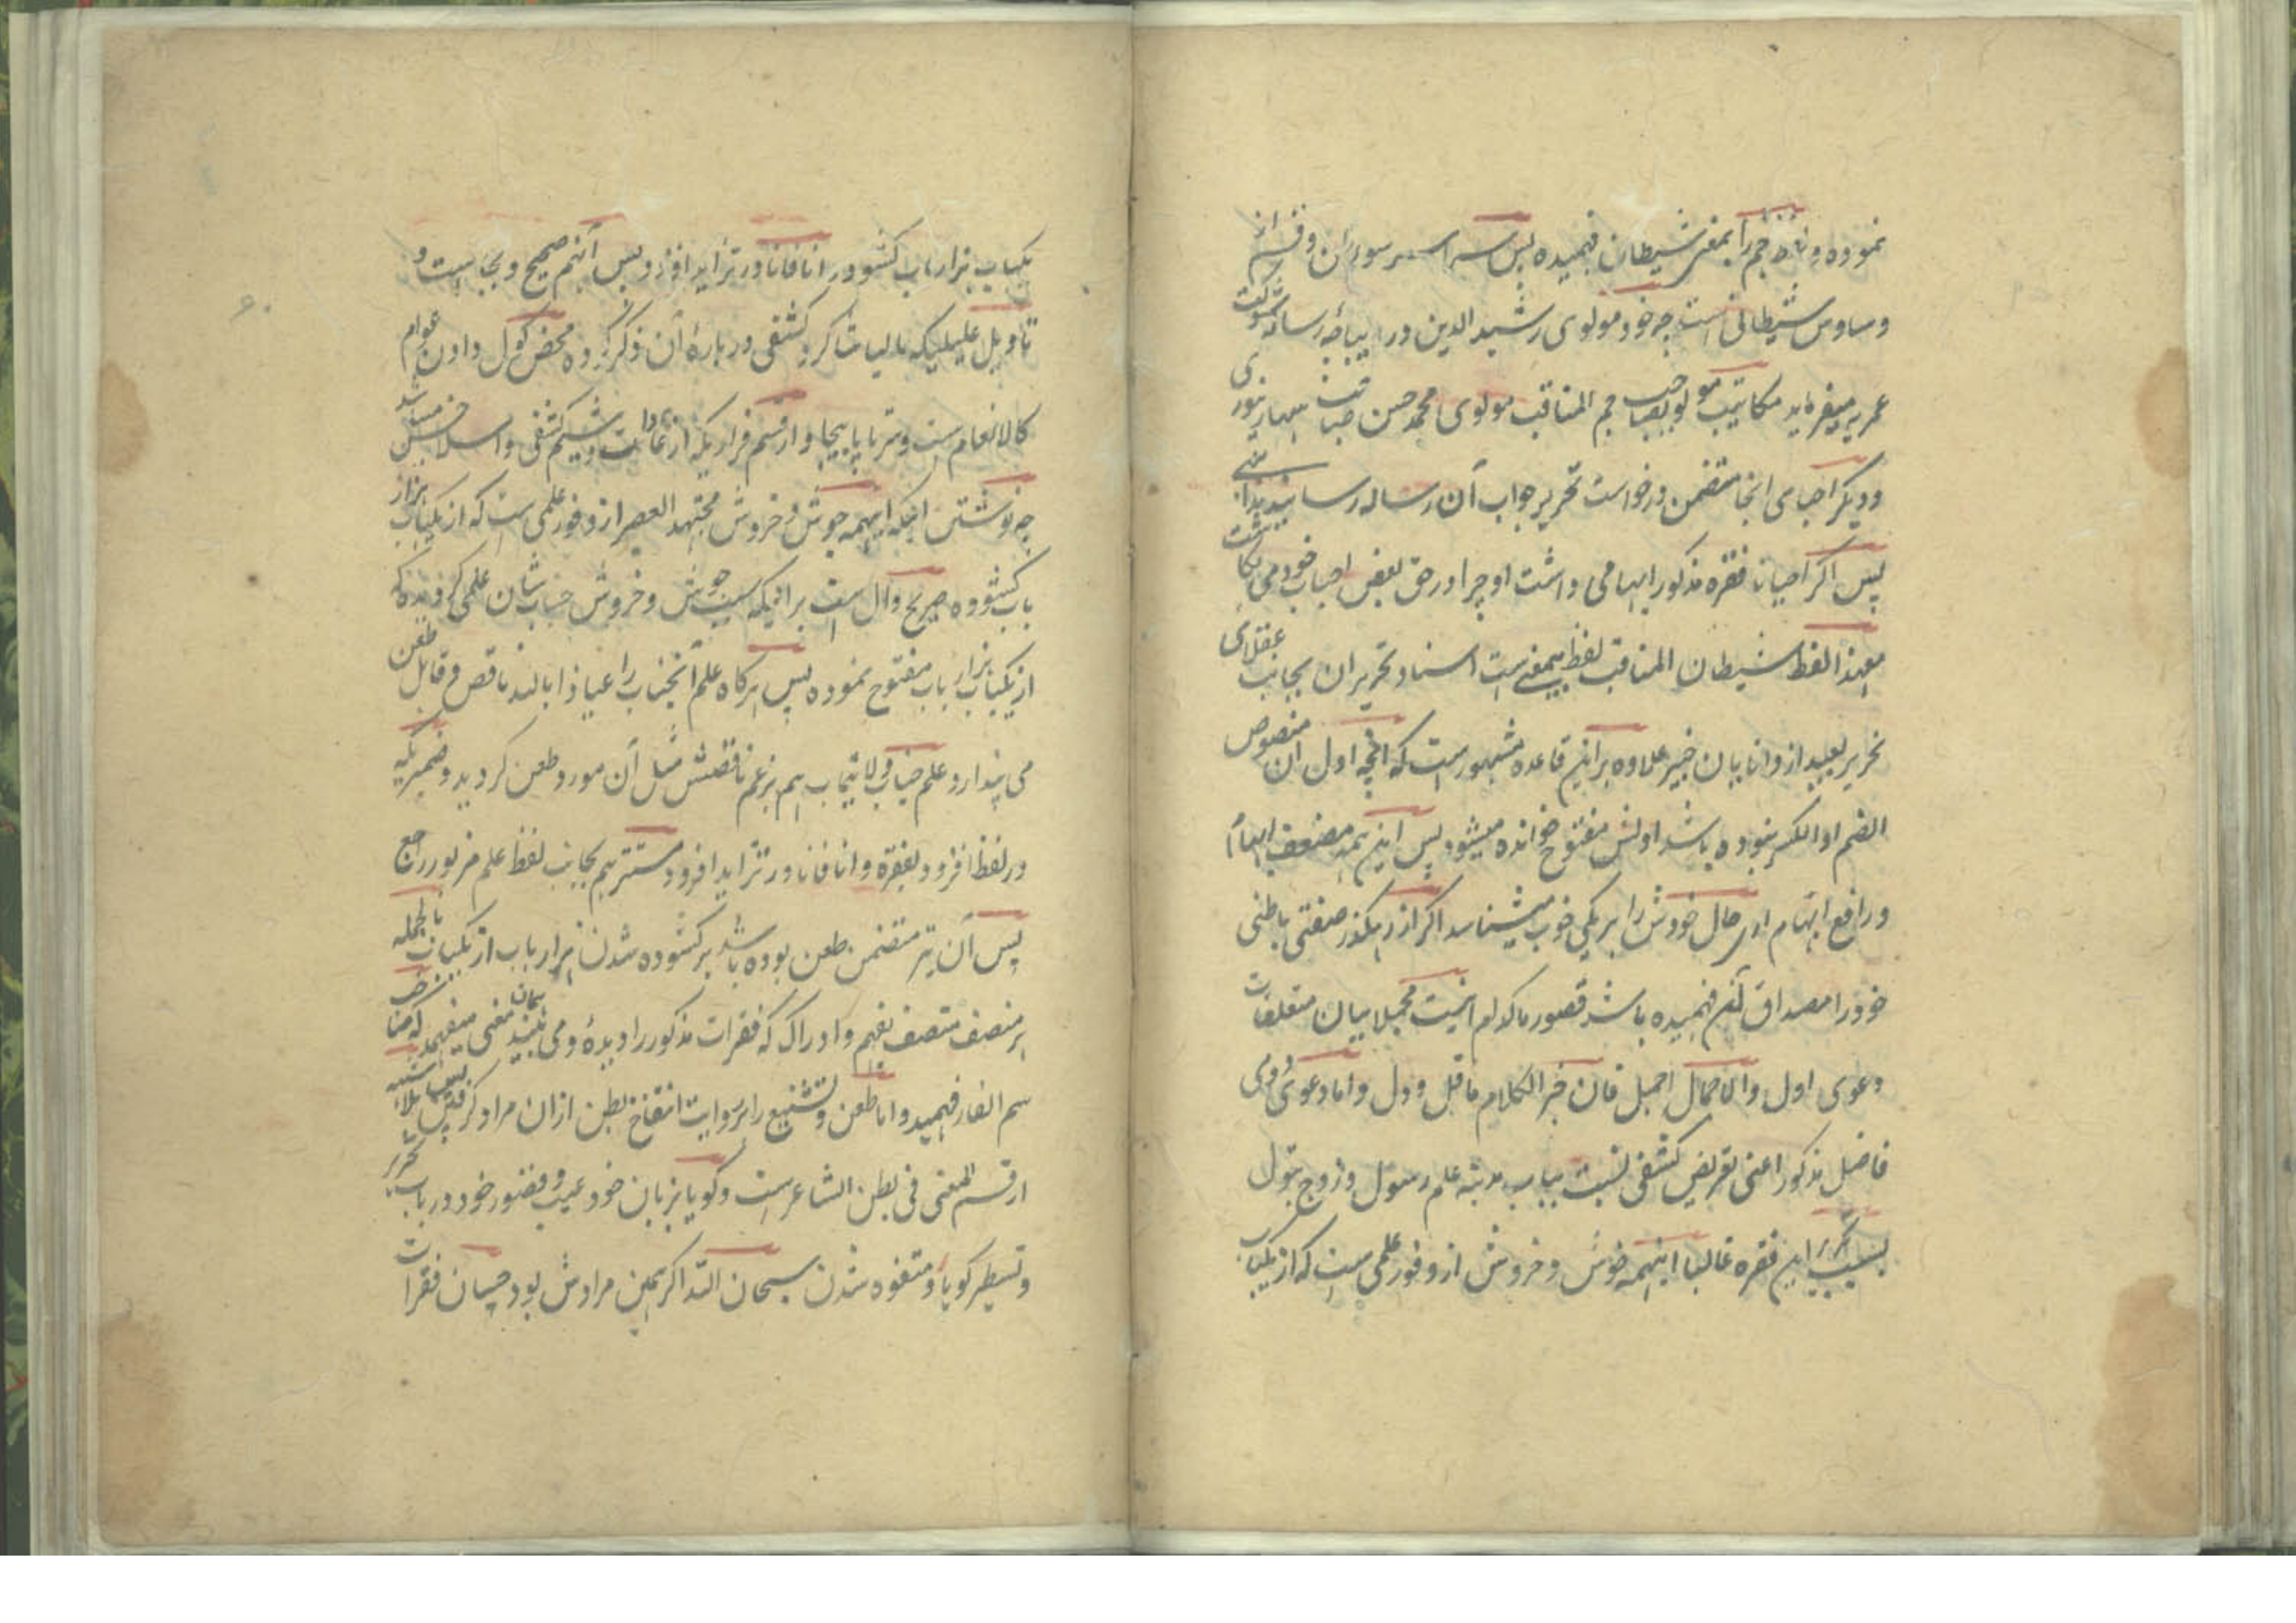 نموده و آنرا بمعنی شیطان فهمیده پس سراسر سوران و از قسم
وساوس شیطانی است چه خود مولوی رشید الدین در دیباچه رساله شوکت
عمریه میفرماید مکاتیب مولویصاحب جم المناقب مولوی محمد حسن صاحب سهارنپوری
و دیگر احبای انجا متضمن درخواست تحریر جواب آن رساله رسانیدند
پس اگر احیانا فقره مذکور ابهامی داشت او چرا در حق بعض احباب خود می نگاشت
معهذا لفظ شیطان المناقب لفظ بیمعنی ست اسناد تحریر آن بجانب عقلای
نحریر بعید از دانایان خبیر علاوه براین قاعده مشهور ست که آنچه اول آن منصوص
الضم او الکسر نبوده باشد اولش مفتوح خوانده میشود پس این همه مصنف ابهاماً
و رافع ابهام از حال خودش را بر یکی خوب میشناسد اگر از رهگذر صفتی باطنی
خود را مصداق آن فهمیده باشد قصور ما کدام است مجملا بیان متعلقات
دعوی اول والاجمال اجمل فان خیر الکلام ما قل و دل و اما دعوی دوی
فاضل مذکور اعنی تعریض کشفی نسبت بباب مدینه علم رسول و زوج بتول
بسبب تحریر این فقره غالبا اینهمه جوش و خروش از وفور علمی ست که از یکباب
یکباب هزار باب کشود و در انا فانا در تزاید افزود پس آنهم صحیح و بجا ست و
تاویل علیلیکه تالیات شاکرد کشفی درباره آن ذکر کرده محض گول دادن عوام
کالانعام ست و سر تا پا بیجا و از قسم قراریکه از عادات و شیم کشفی و اسلافش میباشد
چه نوشتن اینکه اینهمه جوش و خروش مجتهد العصر از وفور علمی ست که از یکباب هزار
باب کشوده صریح دال ست برانیکه سبب جوش و خروش جناب شان علمی گردیده که
از یکباب هزار باب مفتوح نموده پس هرگاه علم آنجناب را عیاذا بالله ناقص و قابل طعن
می پندارد علم جناب ولایتماب هم بزعم ناقصش مثل آن مورد طعن گردید و ضمیریکه
در لفظ افزود بفقره و انا فانا در تزاید افزود مستتر هم بجانب لفظ علم مزبور راجع
پس آن نیز متضمن طعن بوده باشد بر کشوده شدن هزار باب از یکباب بالجمله
هر منصف متصف بفهم و ادراک که فقرات مذکور را دیده و می بیند همان معنی میفهمد که جناب
سم الفار فهمید و اما طعن و تشنیع را بر روایت انتفاخ بطن ازان مراد گرفتن پس بلا اشتباه
از قسم المعنی فی بطن الشاعر ست و گویا بزبان خود عیب و قصور خود در باب تحریر
و تسطیر گویا و متفوه شدن سبحان الله اگر همین مرادش بود چسان فقرات